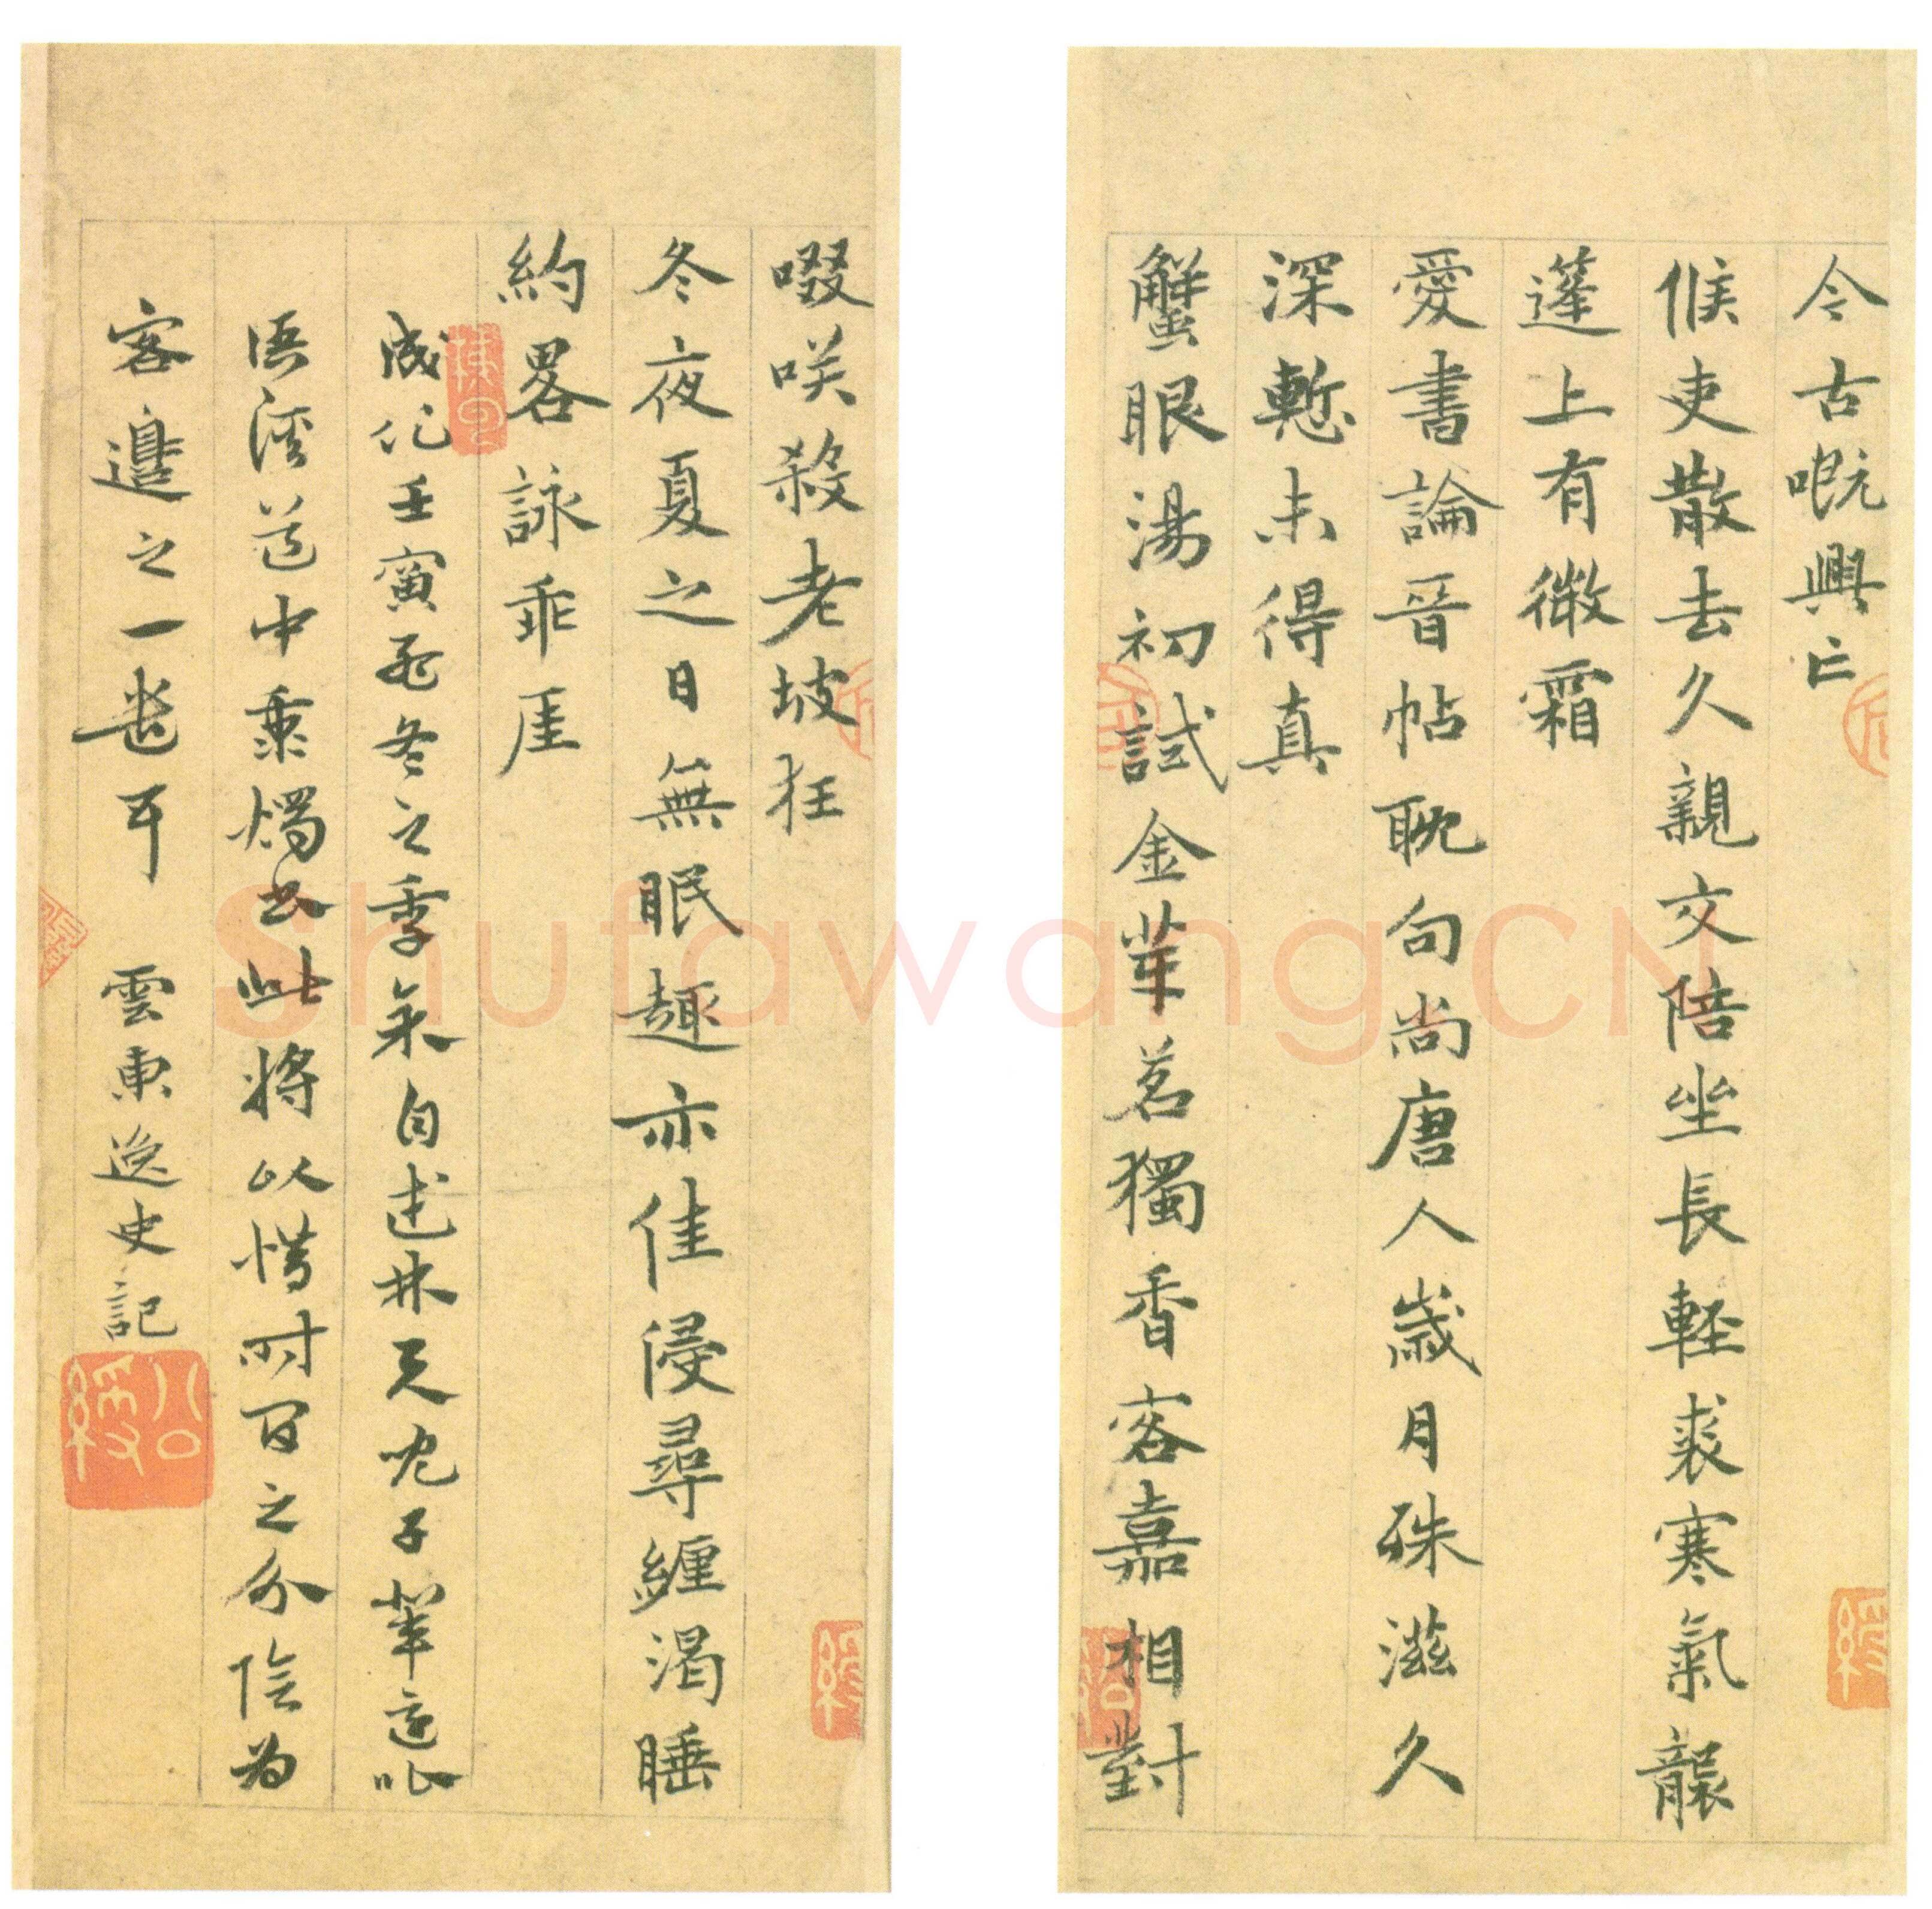 今古嘅興亡
候吏散去久親交陪坐長軽裘寒氣襲
蓬上有微霜
愛書論晉帖耽句尚唐人歲月硃滋久
深慙未得真
蟹眼湯初試金芽茗獨香客嘉相對
啜咲殺老坡狂
冬夜夏之日無眠趣亦佳侵尋纏渴睡
約畧詠乖厓
成化壬寅 冬之季 自述 兒子輩
語溪道中秉燭書此将以惜时日之分陰为
客邉之一 耳 雲東逸史記
公綬
ShufawangCN